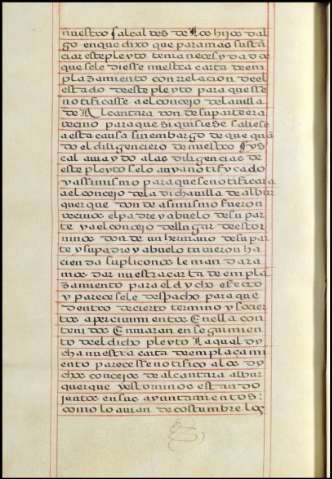 nuestros alcaldes de los hijos dal
go en que dixo que para mas susta
ciar este pleyto tenia necesydad
que se le diese nuestra carta de em
plazamiento con relacion del
estado deste pleyto para que se
notificasse a el concejo de la villa
de Alcantara don de su parte era
vecino para que si quisiese saliese
a esta causa sin embargo de que quã
do el diligenciero de nuestro fys
cal auia ydo a las diligencias de
este pleyto se lo auya notifycado
y assimismo para que se notificara
a el concejo de la dicha villa de albur
querque don de asimismo fueron
vecinos el padre y abuelo de su par
te y a el concejo del lugar de estor
ninos don de un hermano de su par
te y su padre y abuelo tuvieron ha
cienda suplico nos le mandara
mos dar nuestra carta de empla
zamiento para el dycho efecto
y parece se le despacho para que
dentro de cierto termino y so cier
tos apercivimientos en ella con
tenidos enviaran en seguimien
to del dicho pleyto la qual dy
cha nuestra carta de emplaçami
ento parece se notifico a los dy
chos concejos de alcantara albur
querque y estorninos estando
juntos en sus ayuntamientos:
como lo auian de costumbre los